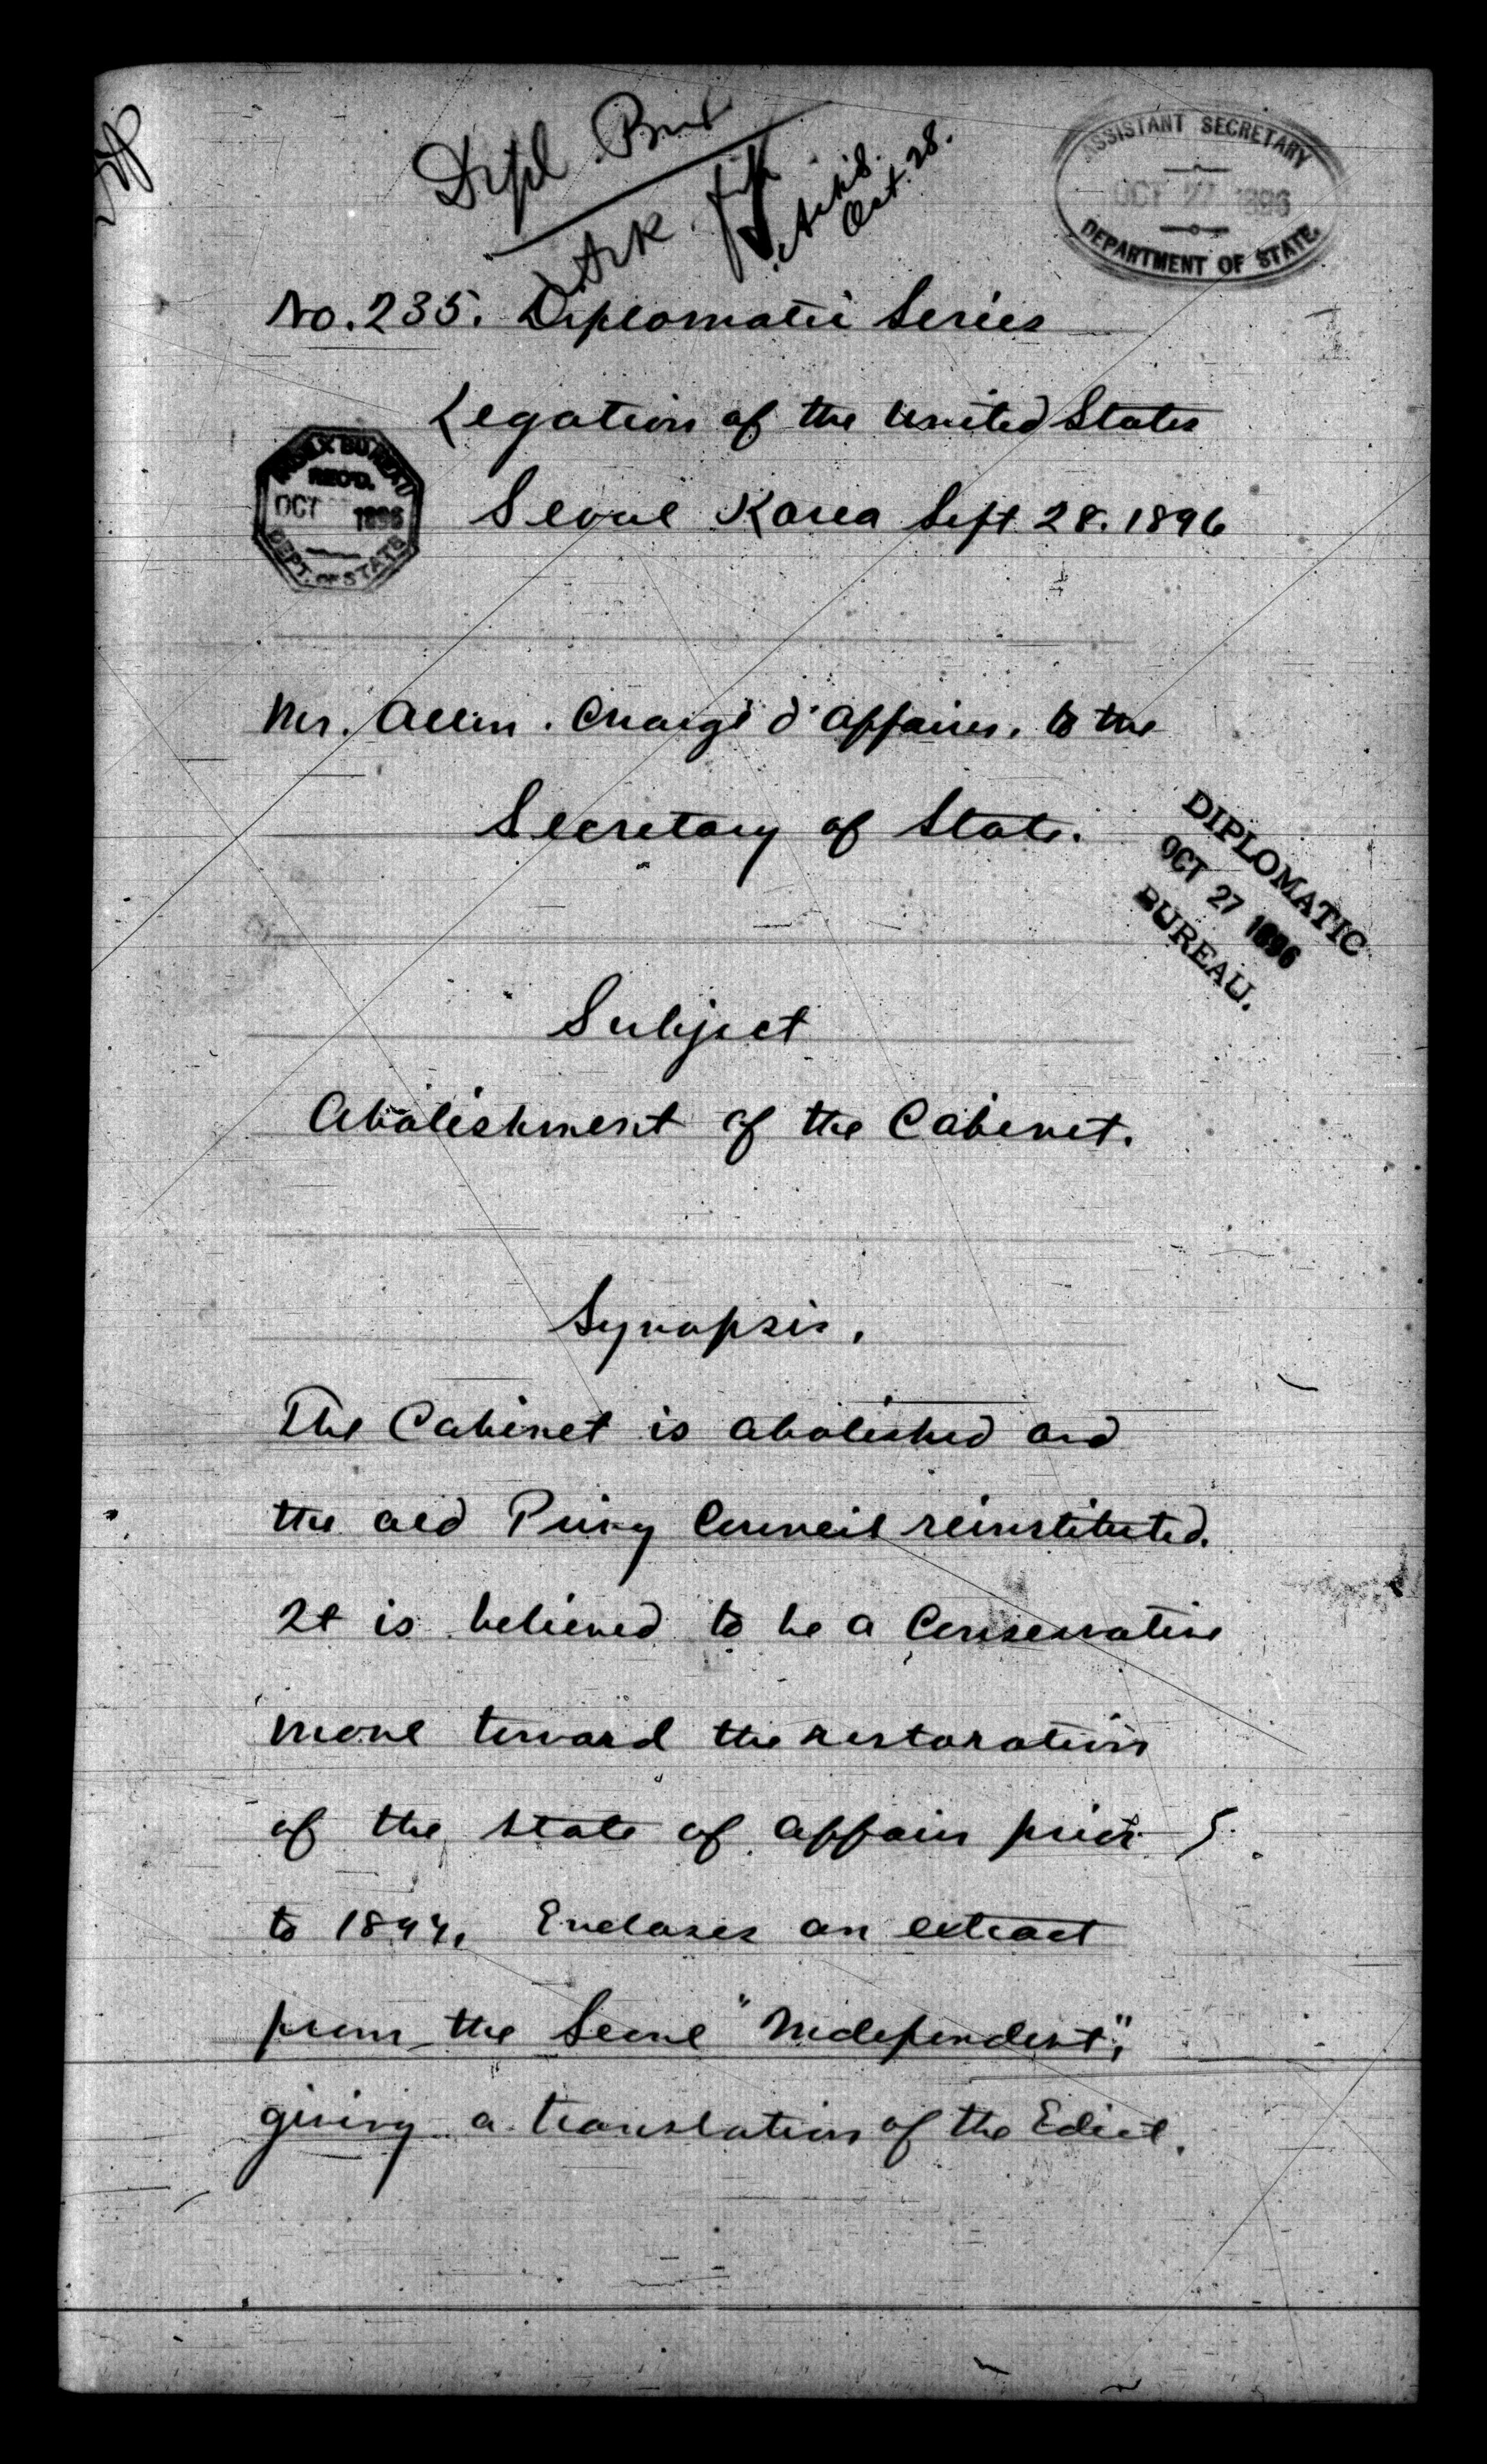 Dipl Bu
Ack
Ack'd.
Oct. 28.
ASSISTANT SECRETARY
OCT 27 1896
DEPARTMENT OF STATE.
No. 235. Diplomatic Series
Legation of the United States
INDEX BUREAU
REC'D.
OCT 1896
DEPT. OF STATE
Seoul Korea Sept 28. 1896
Mr. Allen. Chargé d'Affaires. to the
Secretary of State.
DIPLOMATIC
OCT 27 1896
BUREAU.
Subject
Abolishment of the Cabinet.
Synopsis.
The Cabinet is abolished and
the old Privy Council reinstituted.
It is believed to be a Conservative
move toward the restoration
of the state of affairs prior
to 1894. Encloses an extract
from the Seoul "Independent",
giving a translation of the Edict.